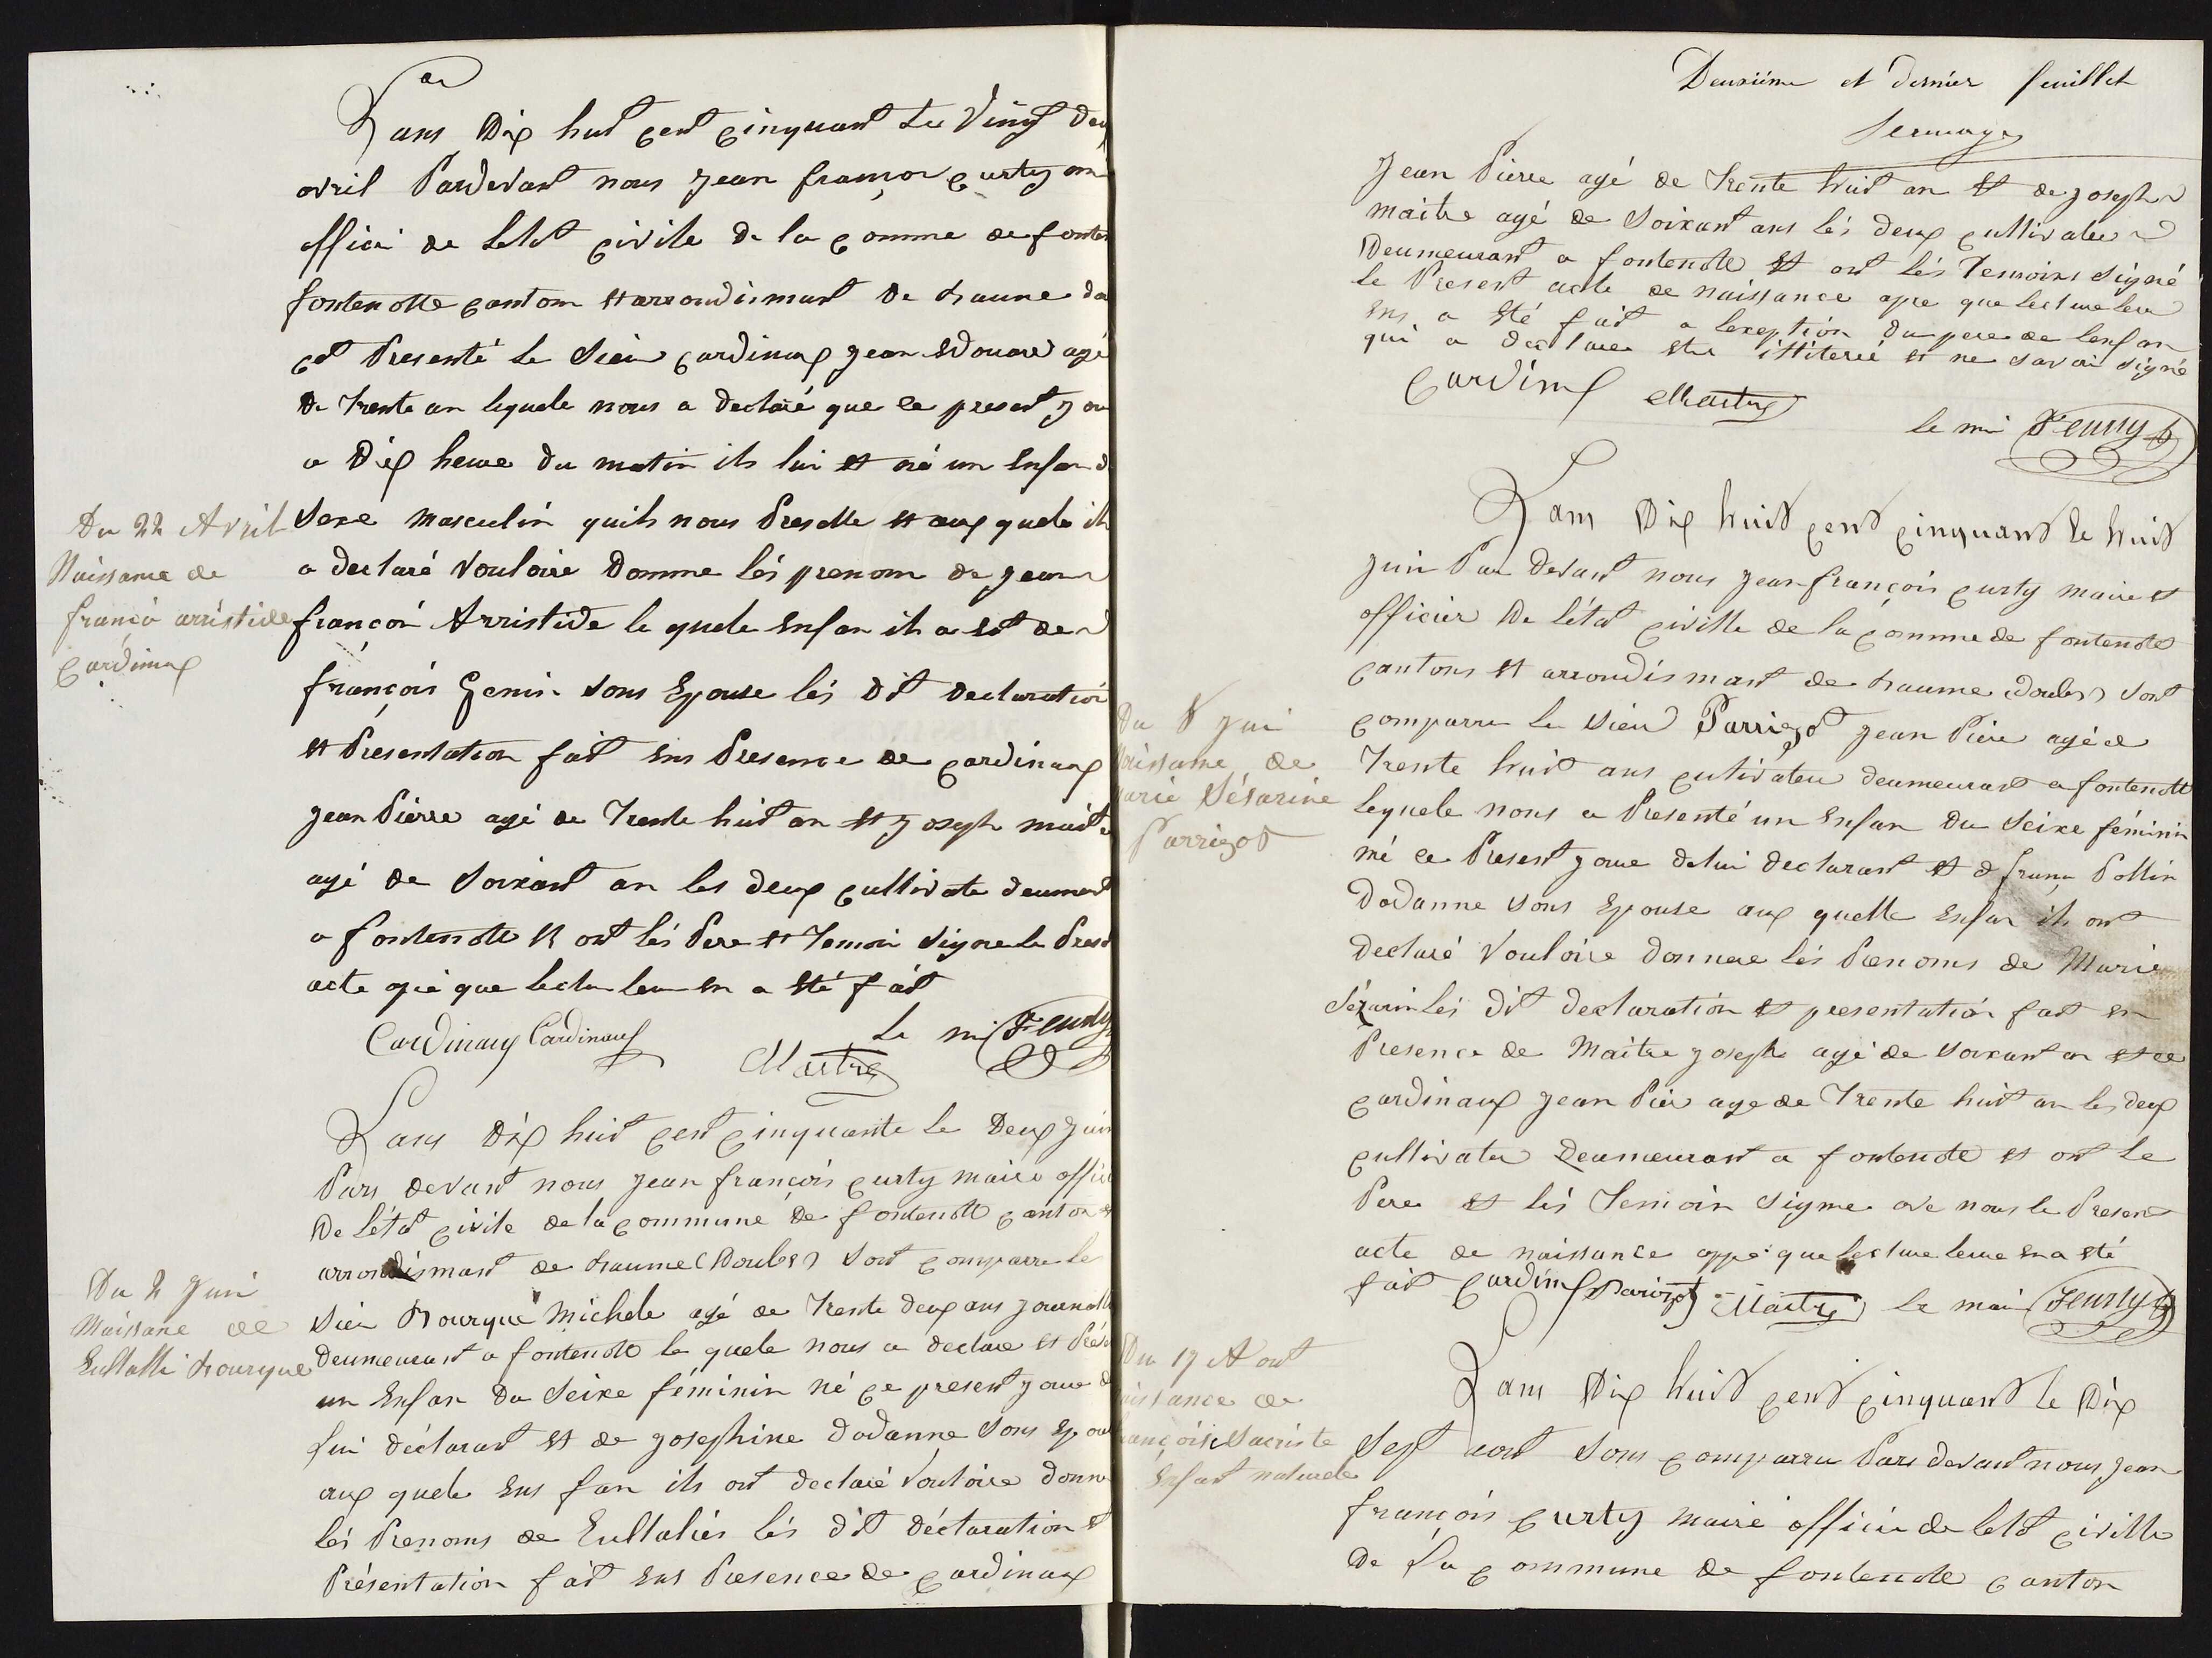 Lans Dix huit cent cinquant Le Vingt deu
avril Pardevant nous Jean françoi Curty
officie de letat civile de la comme de fonte
fontenotte cantom et arrondismant De Baume
et Presenté le Sieu Cardinaux Jean Edouard agé
De trente an lequele nous a declaré que ce present jou
a Dix heure du matin ils lui et né un Enfan d
Du 22 Avril
Naissance de
françoi arristide
Cardinaux
Sexe masculin quils nous Presette et aux quele il
a declaré vouloire Domme les prenom de Jean
françoi Arristide le quele Enfan il a est de
françois Genin sons Epouse les dit declaration
et Presentation fait ens Presence de Cardinaux
Jean Pierre agé de Trente huit an et Joseph mait
agé de soixant an les deux cultivate deument
a fontenotte et ont les Pere et Temoin signe le Prese
acte apré que lectu leu en a été fait
Cardinaux Cardinaux
Maitre
Le mi Feurty
Lans Dix huit cent cinquante le Deux Juin
Pars devant nous Jean françois Curty maire offici
De l'état civile de la commune de fontenotte canton
arrondismant de Baume (Doubs) sont comparre le
Du 2 Juin
Naissane de
Eullalli Bourque
Sieu Bourque Michele agé de Trente deux ans journall
Deumeurant a fontenote le quele nous a declare et Prés
un Enfan du Seixe féminin né ce present joure d
lui déclarant et de Josephine Dodanne sons Epou
aux quele ens fan ils ont declaré vouloire donn
les Prenoms de Eullaliés lés dit déclaration et
Présentation fait ens Presence de Cardinaux
Deuxiéme et dernier feuillet
Jean Pierre agé de trente huit an et de Joseph
maitre agé de Soixant ans lés deux cultivateu
Deumeurant a fontenotte et ont lés Temoins signé
le Present acte de naissance apre que lecture leu
ens a été fait a lexeption du pere de lenfan
qui a declaree etre illiteré et ne savoir signé
Cardina Maitre
le mi Feurty
Lans Dix huit cent cinquant le huit
Juin Par devant nous Jean françois Curty maire et
officier De l'état civille de la comme de fontenote
cantons et arrondismant de Baume (Doubs) sont
Du 8 Jui
aissance de
arie Sésarine
Parrizot
comparru le sieu Parrizot Jean Piere agé de
Trente huit ans cultivateu deumeurant a fontenott
lequele nous a Presenté un Enfan du Seixe féminin
né ce Present joure de lui declarant et d franç Pollin
Dodanne sons Epouse aux quelle Enfan ils ont
declaré vouloire donnere les Prenoms de Marie
Sézarin lés dit declaration et presentation fait en
Presence de Maitre Joseph agé de soixant an et de
Cardinaux Jean Pier age de Trente huit an les deux
cultivateu Deumeurant a fontenote et ont le
Pere et lés Temoin signe ave nous le Present
acte de naissance appé que lecture leure en a été
fait Cardina Parizot Maitre le mai Feurty
Du 17 Aout
issance de
ançoise Sacriste
Enfant naturele
Lans Dix huit cent cinquant le Dix
Sept aout sons comparru Pars devant nous Jean
françois Curty maire officie de letat civille
De la commune de fontenote canton